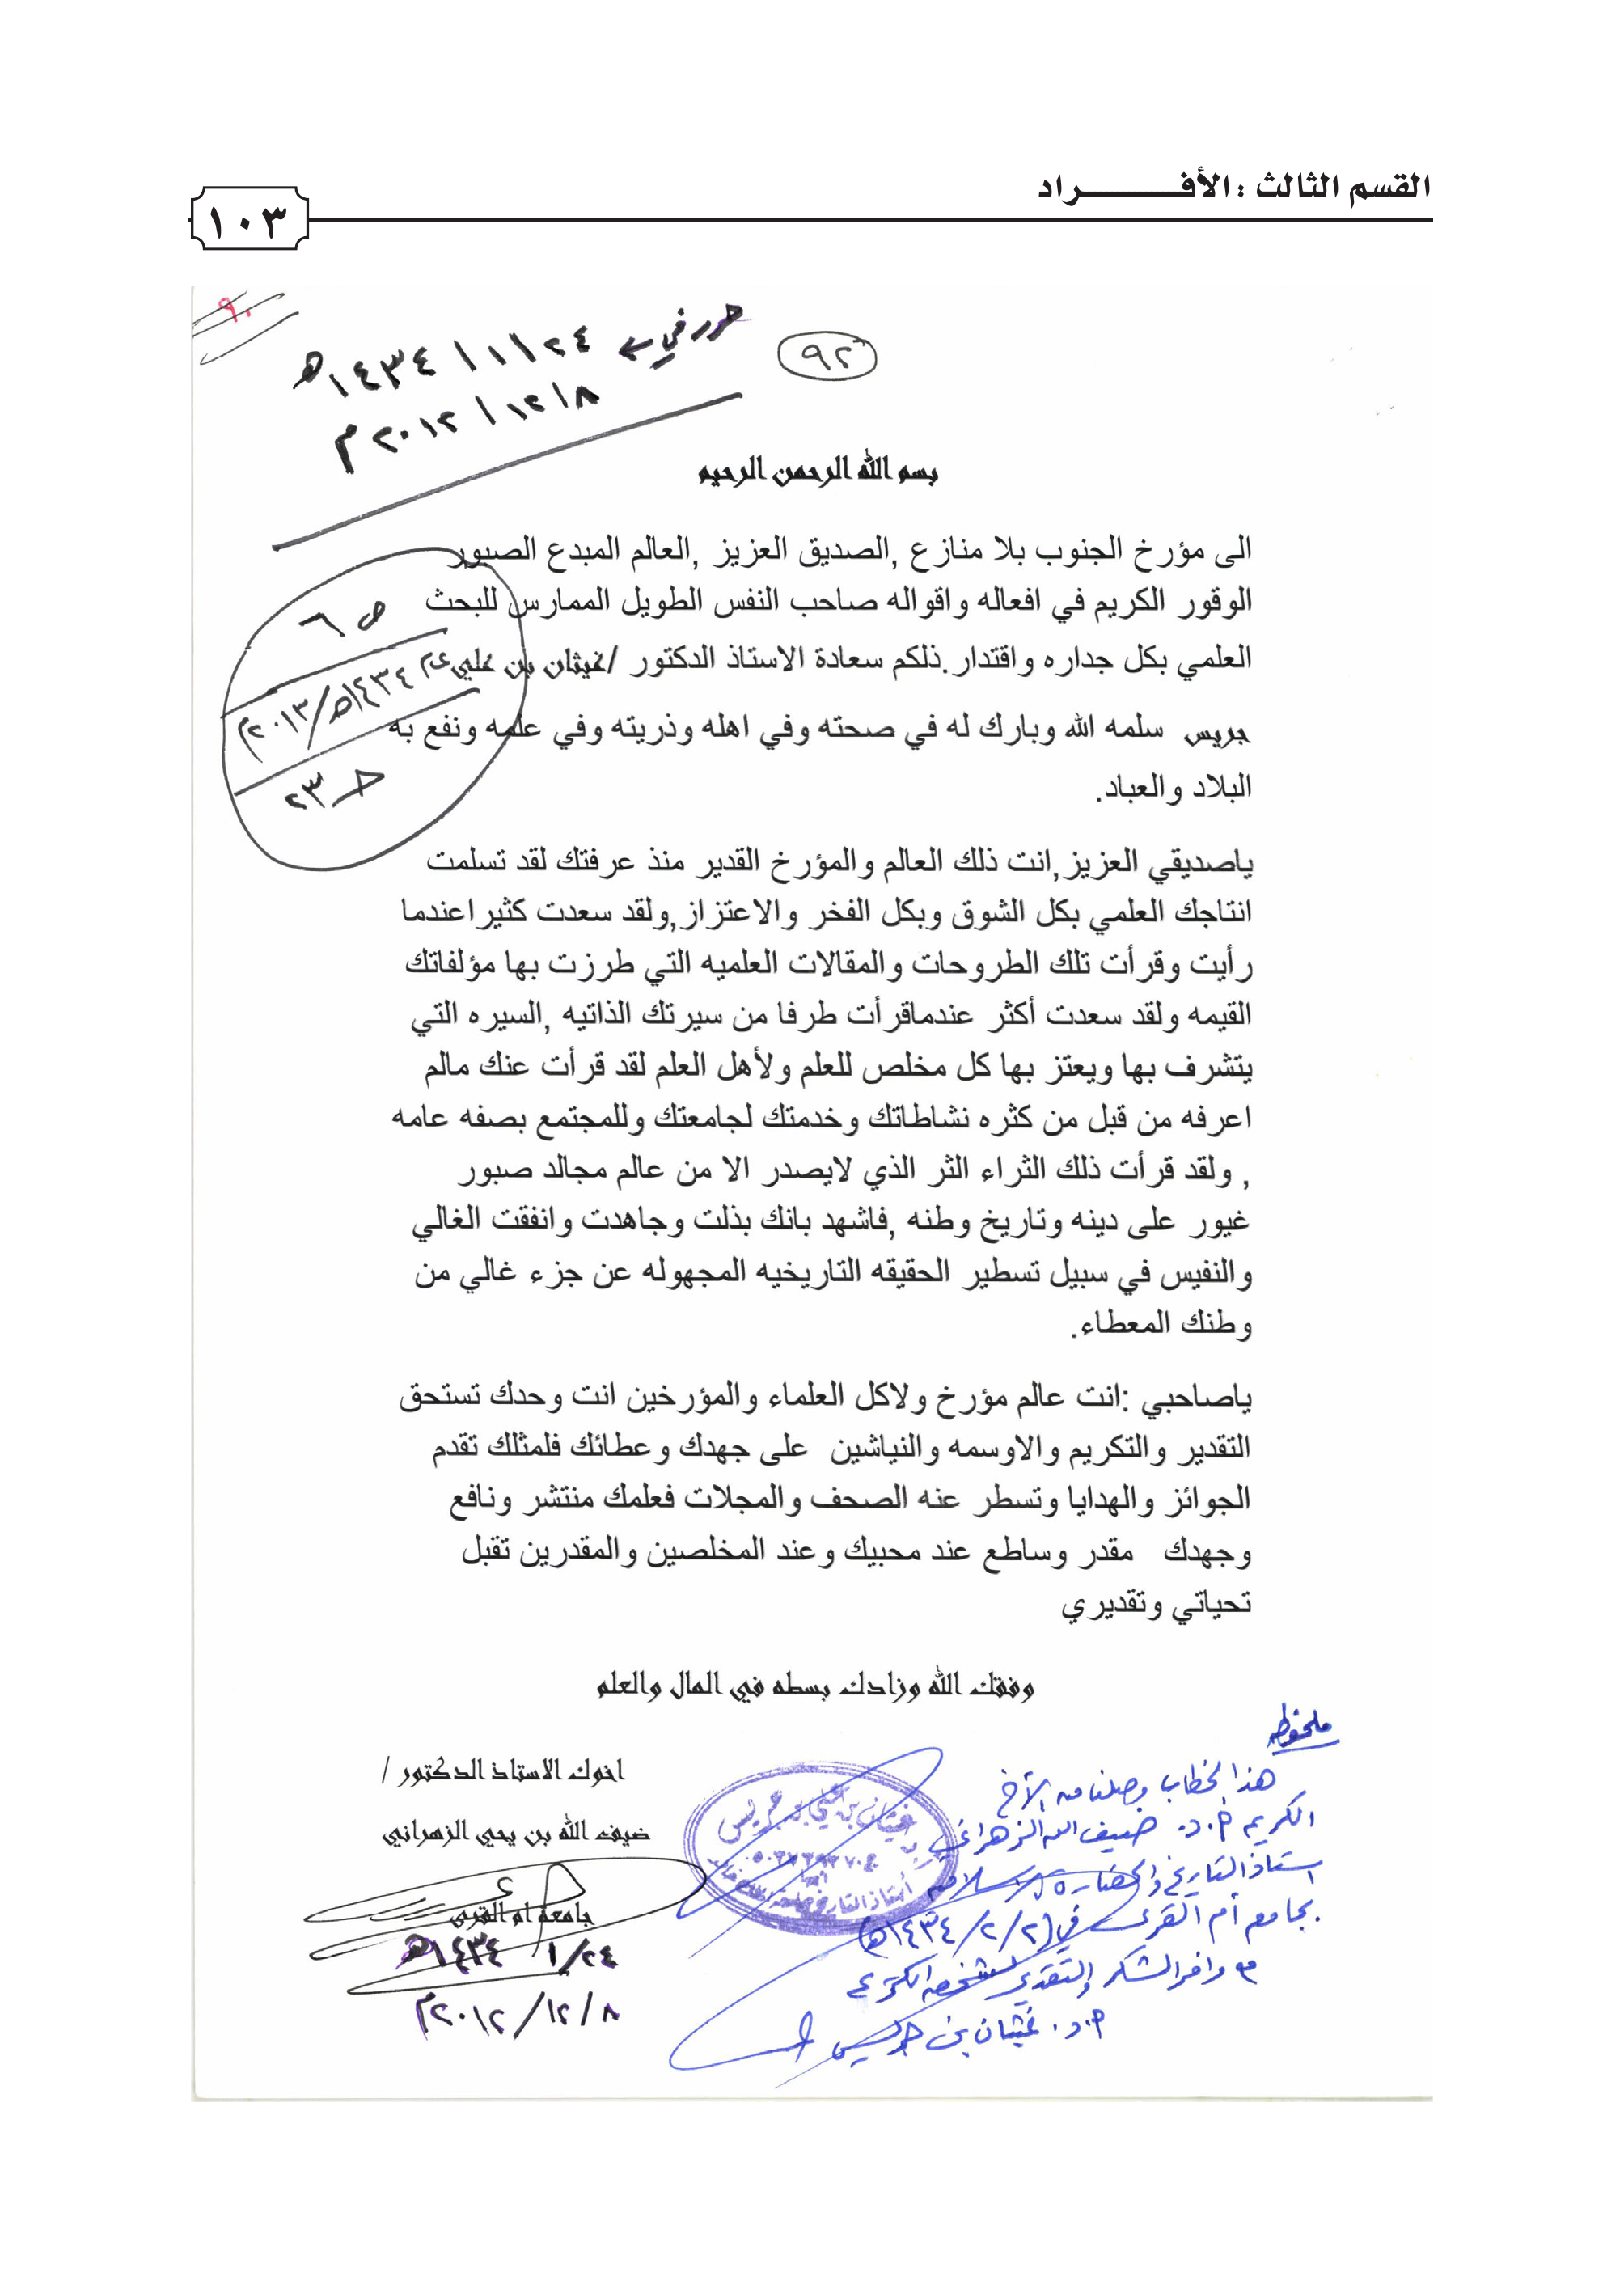 القسم الثالث : الأفـــــــــــراد
١٠٣
٩٠
٩٢
حرر في ← ٢٤ / ١ / ١٤٣٤هـ
٨ / ١٢ / ٢٠١٢م
بسم الله الرحمن الرحيم
الى مؤرخ الجنوب بلا منازع ,الصديق العزيز ,العالم المبدع الصبور
الوقور الكريم في افعاله واقواله صاحب النفس الطويل الممارس للبحث
العلمي بكل جداره واقتدار.ذلكم سعادة الاستاذ الدكتور /غيثان بن علي
جريس سلمه الله وبارك له في صحته وفي اهله وذريته وفي علمه ونفع به
البلاد والعباد.
ص ٦
عام ١٤٣٤هـ/٢٠١٣م
حـ ٢٣
ياصديقي العزيز,انت ذلك العالم والمؤرخ القدير منذ عرفتك لقد تسلمت
انتاجك العلمي بكل الشوق وبكل الفخر والاعتزاز,ولقد سعدت كثيراعندما
رأيت وقرأت تلك الطروحات والمقالات العلميه التي طرزت بها مؤلفاتك
القيمه ولقد سعدت أكثر عندماقرأت طرفا من سيرتك الذاتيه ,السيره التي
يتشرف بها ويعتز بها كل مخلص للعلم ولأهل العلم لقد قرأت عنك مالم
اعرفه من قبل من كثره نشاطاتك وخدمتك لجامعتك وللمجتمع بصفه عامه
, ولقد قرأت ذلك الثراء الثر الذي لايصدر الا من عالم مجالد صبور
غيور على دينه وتاريخ وطنه ,فاشهد بانك بذلت وجاهدت وانفقت الغالي
والنفيس في سبيل تسطير الحقيقه التاريخيه المجهوله عن جزء غالي من
وطنك المعطاء.
ياصاحبي :انت عالم مؤرخ ولاكل العلماء والمؤرخين انت وحدك تستحق
التقدير والتكريم والاوسمه والنياشين على جهدك وعطائك فلمثلك تقدم
الجوائز والهدايا وتسطر عنه الصحف والمجلات فعلمك منتشر ونافع
وجهدك مقدر وساطع عند محبيك وعند المخلصين والمقدرين تقبل
تحياتي وتقديري
وفقك الله وزادك بسطه في المال والعلم
اخوك الاستاذ الدكتور /
ضيف الله بن يحي الزهراني
جامعة ام القرى
٢٤/ ١ ١٤٣٤هـ
٨ / ١٢ / ٢٠١٢م
ملحوظه
هذا الخطاب وصلنا من الأخ
الكريم أ.د. ضيف الله الزهراني
استاذ التاريخ والحضارة الإسلامية
بجامعة أم القرى في (٢ / ٢ / ١٤٣٤هـ)
مع وافر الشكر والتقدير لشخصه الكريم
أ.د. غيثان بن جريس
غيثان بن علي بن جريس
أبها
أستاذ التاريخ بجامعة الملك خالد